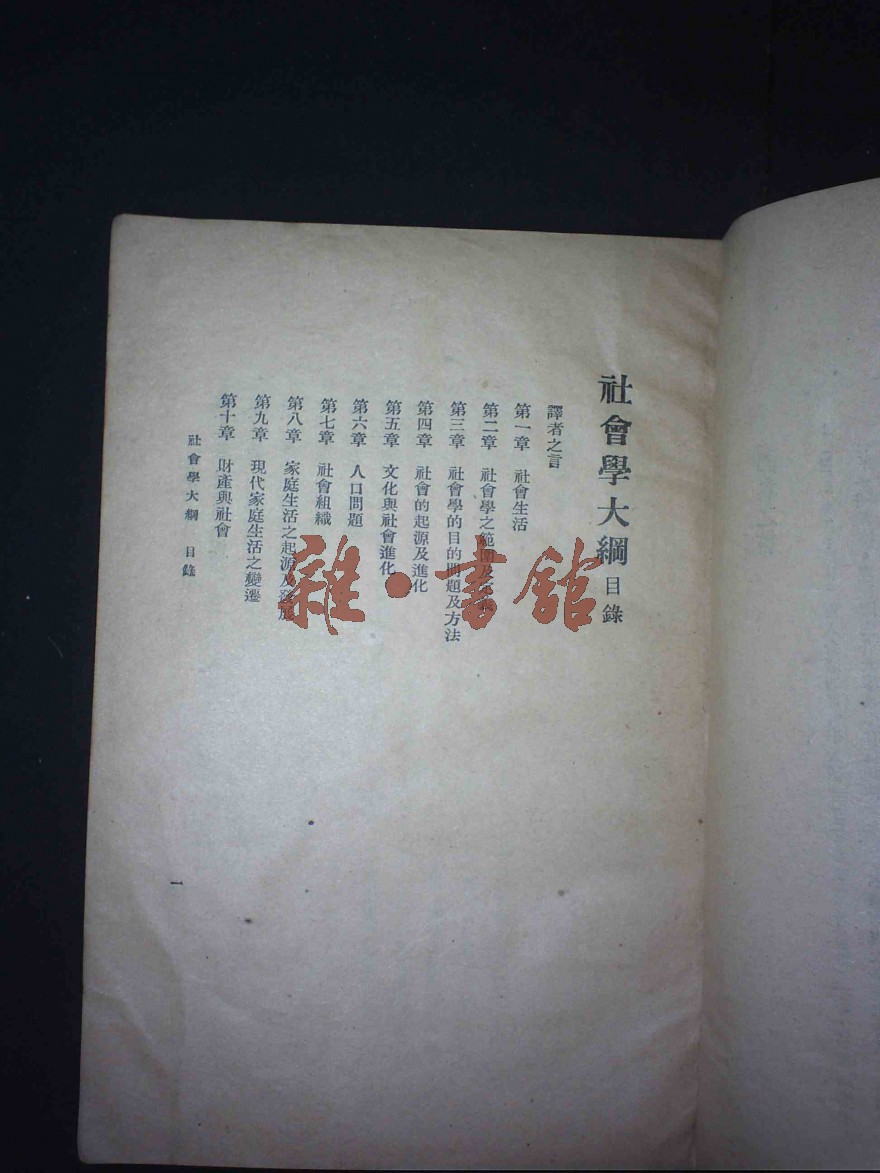 社會學大綱 目錄
譯者之言
第一章 社會生活
第二章 社會學之範圍及
第三章 社會學的目的問題及方法
第四章 社會的起源及進化
第五章 文化與社會進化
第六章 人口問題
第七章 社會組織
第八章 家庭生活之起源及發展
第九章 現代家庭生活之變遷
第十章 財產與社會
社會學大綱 目錄
一
雜·書館